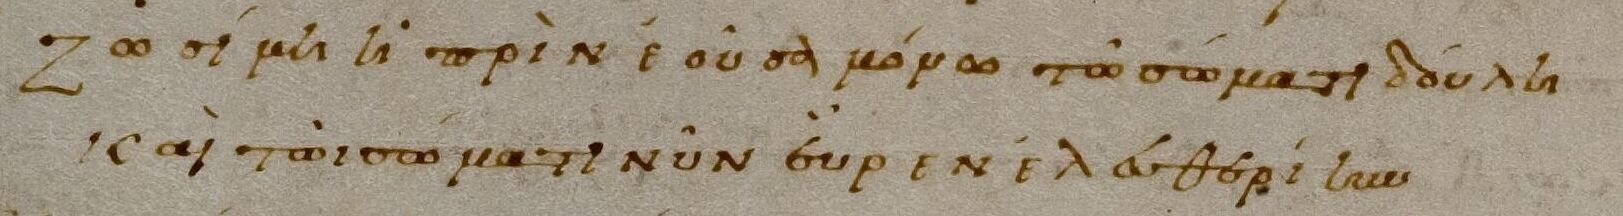 Ζωσίμη ἡ πρὶν ἐοῦσα μόνω τῶ σώματι δούλη
καὶ τῶι σώματι νῦν εὗρεν ἐλευθερίην